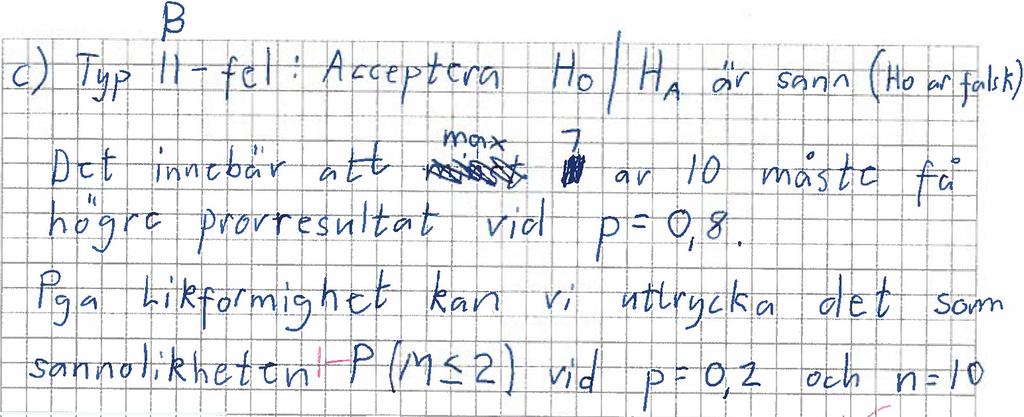 B
c) Typ II-fel: Acceptera H0 / HA är sann (H0 ar falsk)
Det innebär att max 7 av 10 måste få
högre provresultat vid p = 0,8.
Pga Likformighet kan vi uttrycka det som
sannolikheten 1-P(M≤2) vid p=0,2 och n=10